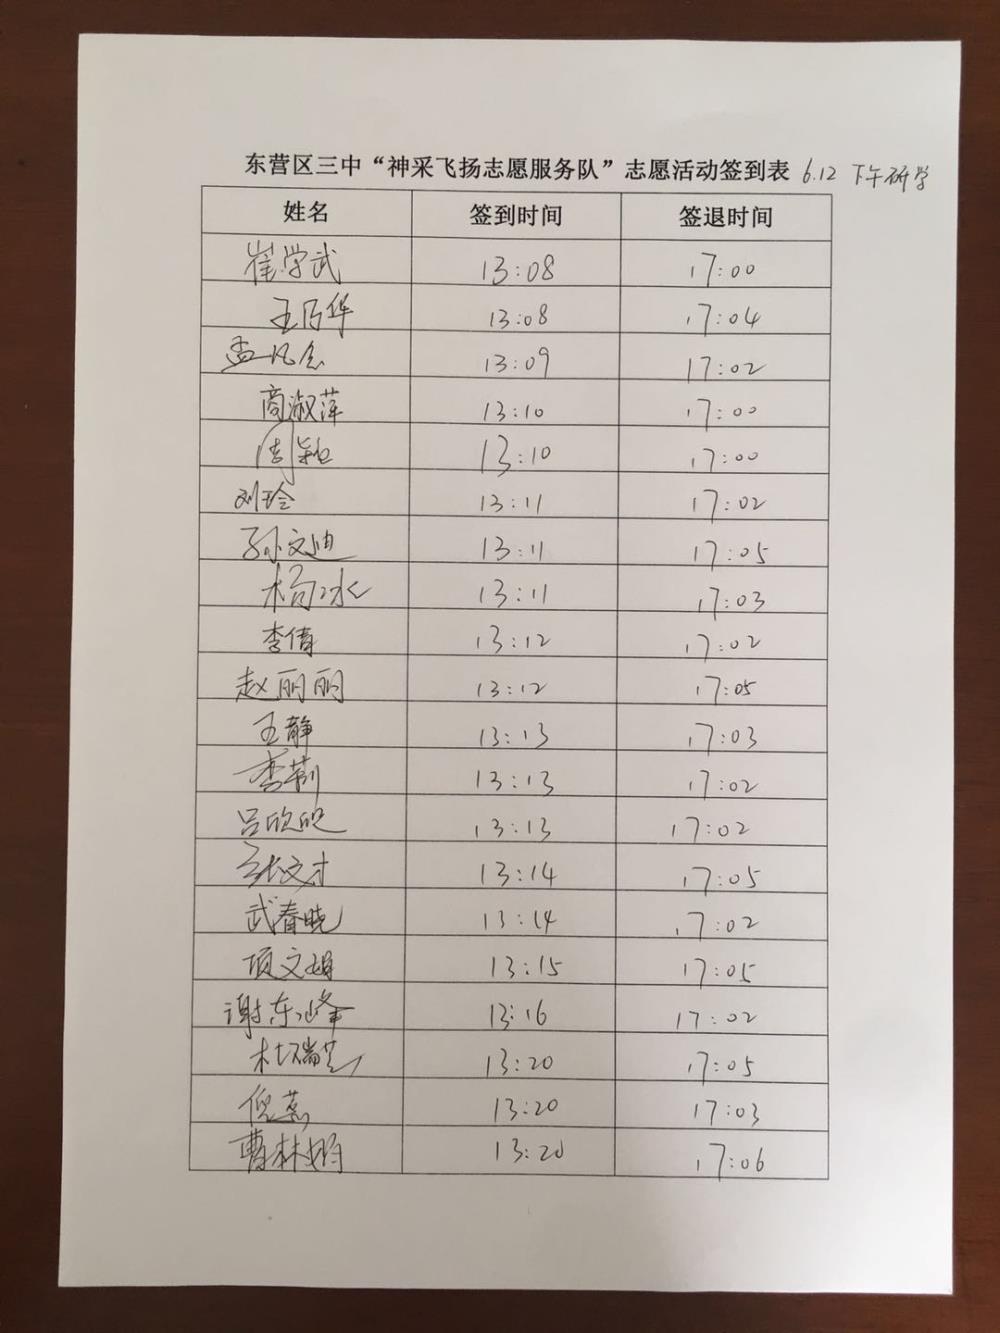 东营区三中“神采飞扬志愿服务队”志愿活动签到表 6.12 下午研学
姓名 签到时间 签退时间
崔学武 13:08 17:00
王乃华 13:08 17:04
孟凡念 13:09 17:02
商淑萍 13:10 17:00
周颖 13:10 17:00
刘玲 13:11 17:02
孙文迪 13:11 17:05
杨冰 13:11 17:03
李倩 13:12 17:02
赵丽丽 13:12 17:05
王静 13:13 17:03
李莉 13:13 17:02
吕欣欣 13:13 17:02
张文才 13:14 17:05
武春晓 13:14 17:02
项文娟 13:15 17:05
谢东峰 13:16 17:02
杜瑞芝 13:20 17:05
倪燕 13:20 17:03
曹林娟 13:20 17:06